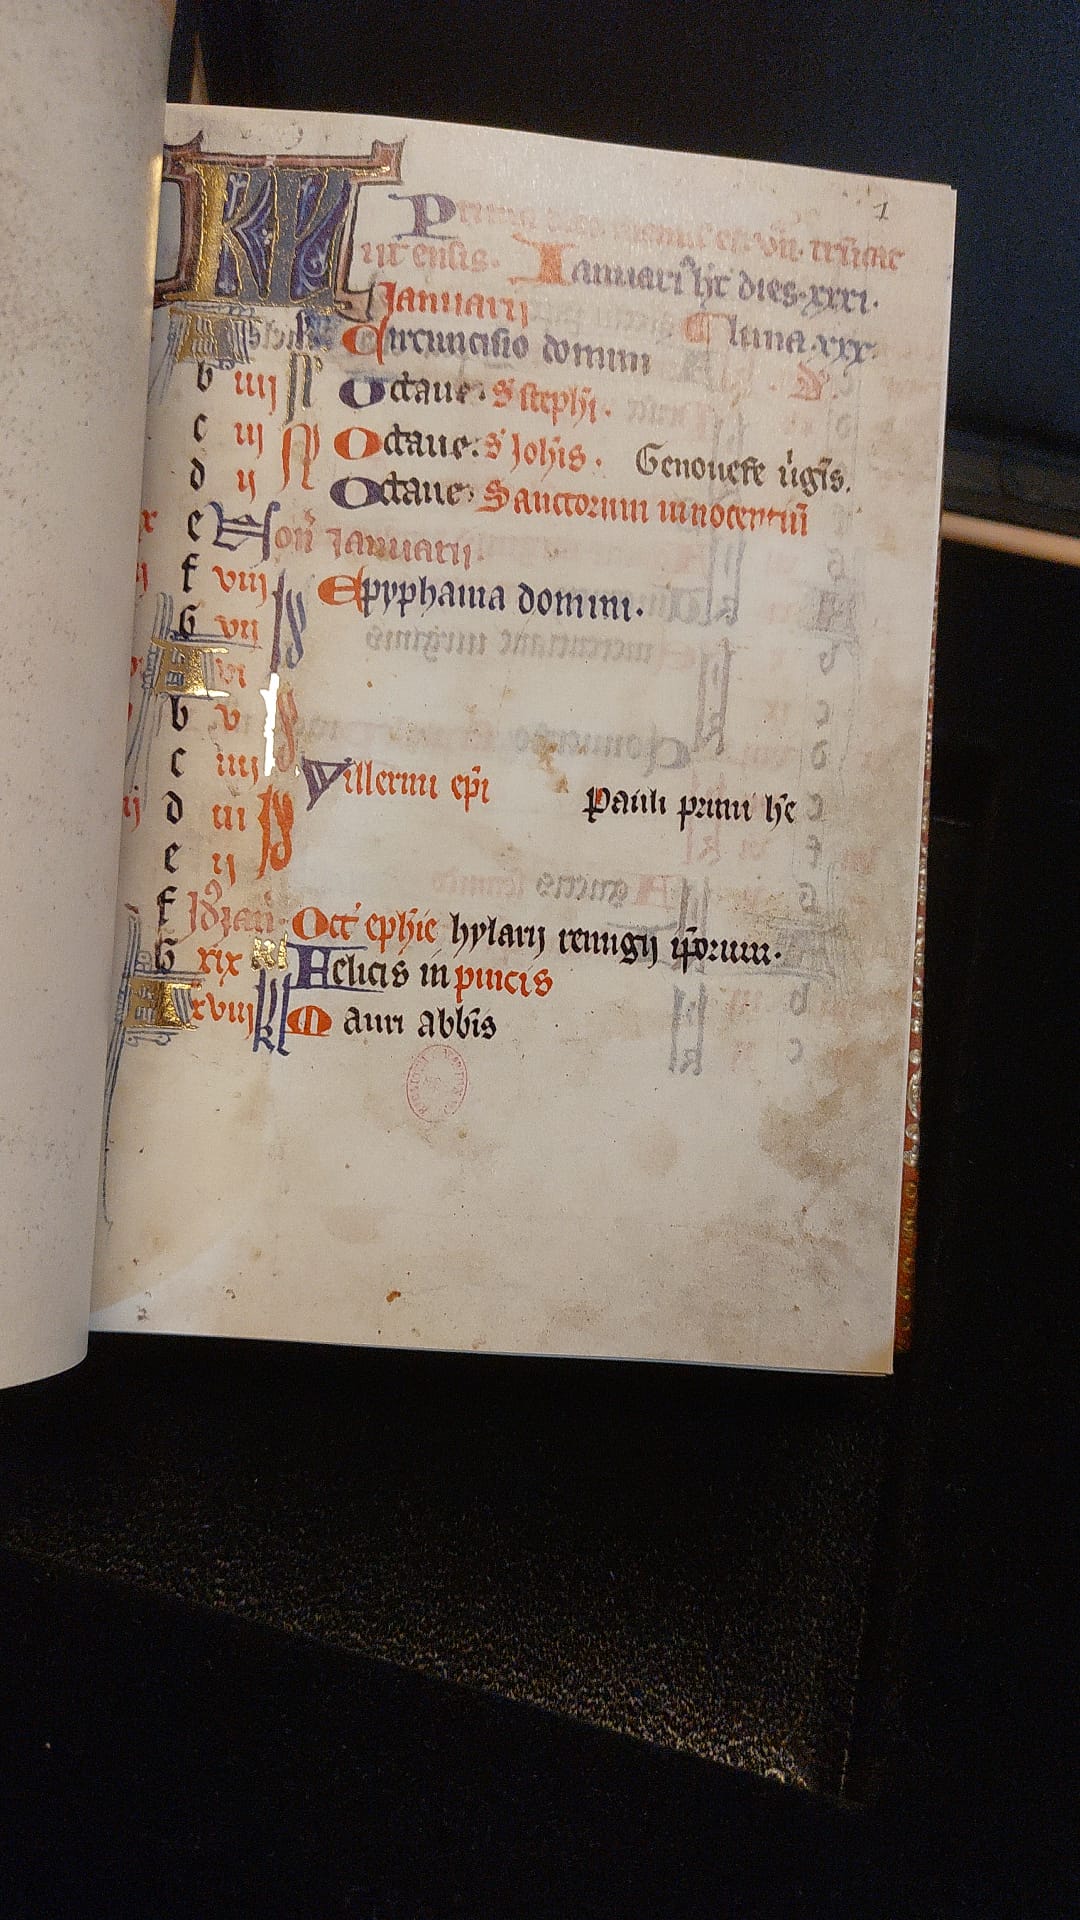 1
KL Prima dies mensis est vii. truncat
ut ensis. Ianuari' ht dies. xxxi.
Januarii luna. xxx.
A Circuncisio domini
b iiii N Octaue. S' steph̄i.
c iii N Octaue. S' Joh̄is. Genouefe u̾gīs.
d ii Octaue. Sanctorum innocentiū
e Noñ Januarii
f viii Epyphania domini.
G vii
A vi
b v
c iiii Villermi ep̄i Pauli primi h̄e
d iii
e ii
f Id' Jañ. Oct' eph̄ie hylarij remigij ip̄orum.
G xix Felicis in pincis
A xviii Mauri abb̄is